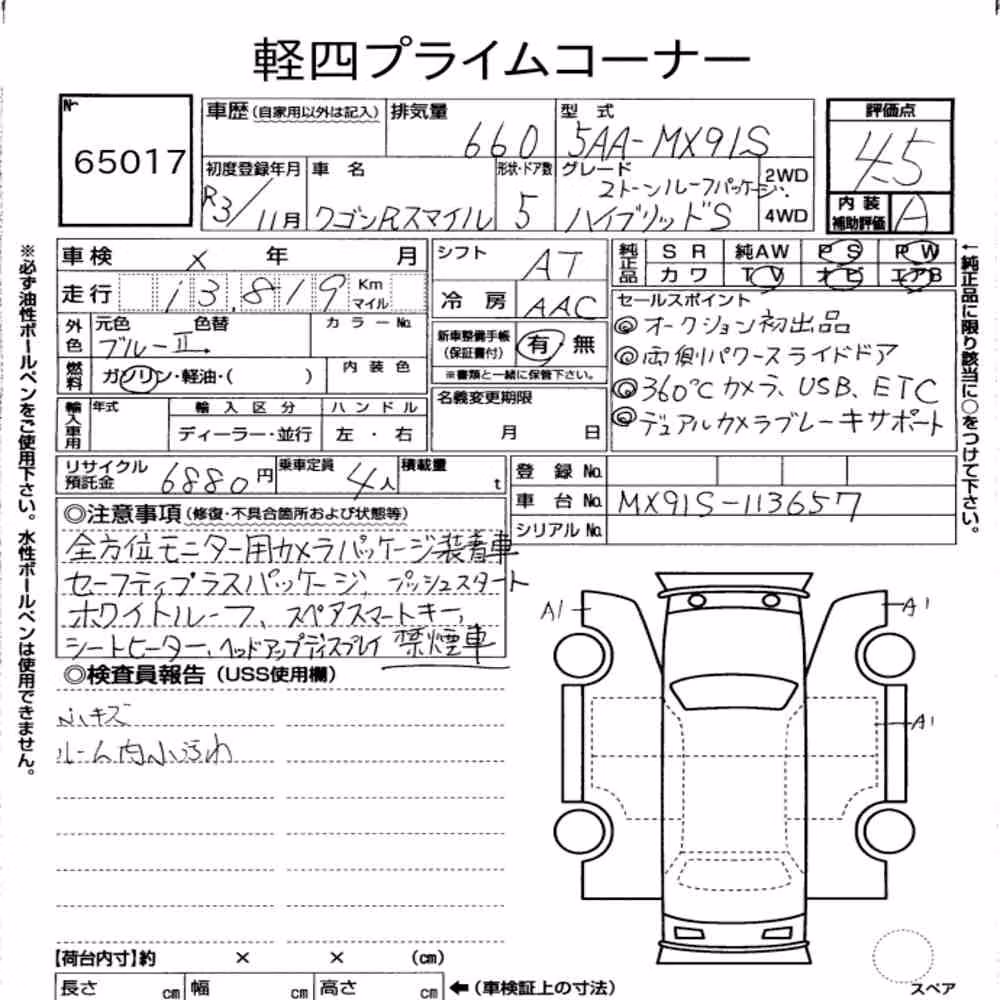 軽四プライムコーナー
№ 65017
車歴(自家用以外は記入) 排気量 660 型式 5AA-MX91S
初度登録年月 R3/11月 車名 ワゴンRスマイル 形状・ドア数 5 グレード 2トーンルーフパッケージ ハイブリッドS 2WD 4WD
評価点 4.5
内装補助評価 A
車検 × 年 月
走行 13,819 Km マイル
外色 元色 色替 カラーNo. ブルーⅡ.
燃料 ガソリン・軽油・( ) 内装色
輸入車用 年式 輸入区分 ハンドル
ディーラー・並行 左・右
シフト AT
冷房 AAC
新車整備手帳(保証書付) 有 無
※書類と一緒に保管下さい。
名義変更期限 月 日
純正品 SR 純AW PS PW
カワ TV ナビ エアB
セールスポイント
◎オークション初出品
◎両側パワースライドドア
◎360℃カメラ、USB、ETC
◎デュアルカメラブレーキサポート
リサイクル預託金 6880円 乗車定員 4人 積載量 t
登録No.
車台No. MX91S-113657
シリアルNo.
◎注意事項(修復・不具合箇所および状態等)
全方位モニター用カメラパッケージ装着車
セーフティプラスパッケージ, プッシュスタート
ホワイトルーフ、スペアスマートキー,
シートヒーター、ヘッドアップディスプレイ 禁煙車
◎検査員報告(USS使用欄)
小キズ
ルーム内小汚れ
A1
A1
A1
【荷台内寸】約 × × (cm)
長さ cm 幅 cm 高さ cm ←(車検証上の寸法)
スペア
※必ず油性ボールペンをご使用下さい。水性ボールペンは使用できません。
←純正品に限り該当に○をつけて下さい。